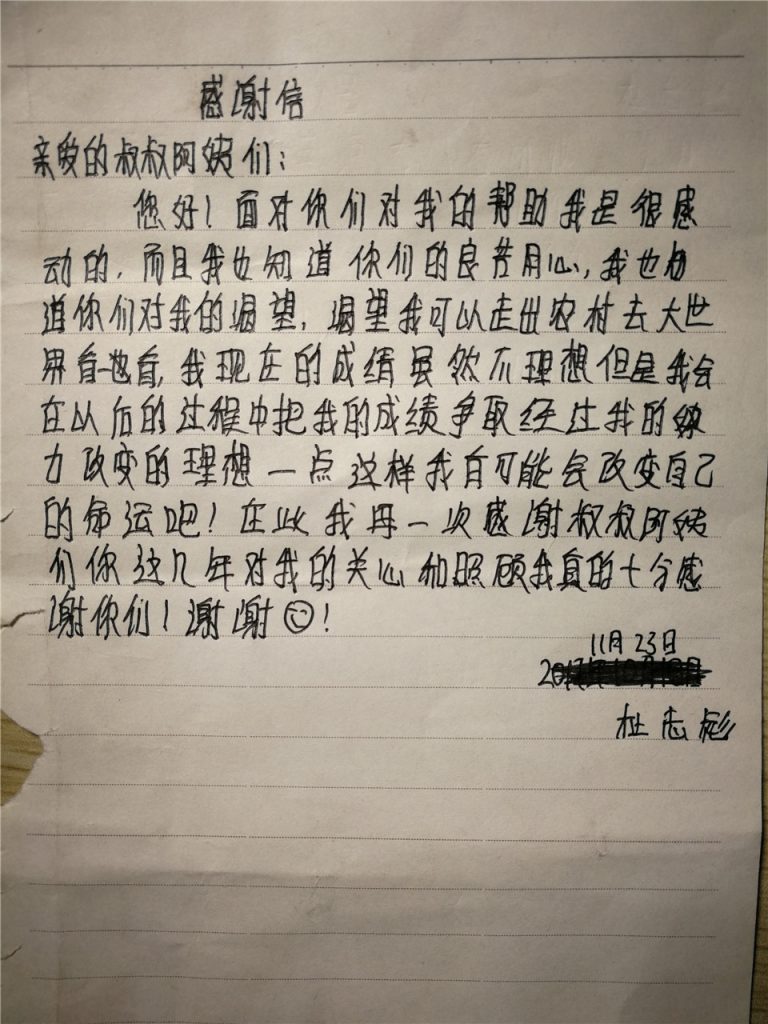 感谢信
亲爱的叔叔阿姨们：
您好！面对你们对我的帮助我是很感
动的，而且我也知道你们的良苦用心，我也知
道你们对我的渴望，渴望我可以走出农村去大世
界看一看，我现在的成绩虽然不理想但是我会
在以后的过程中把我的成绩争取经过我的努
力改变的理想一点这样我自可能会改变自己
的命运吧！在此我再一次感谢叔叔阿姨
们你这几年对我的关心和照顾我真的十分感
谢你们！谢谢☺！
11月23日
杜志彪